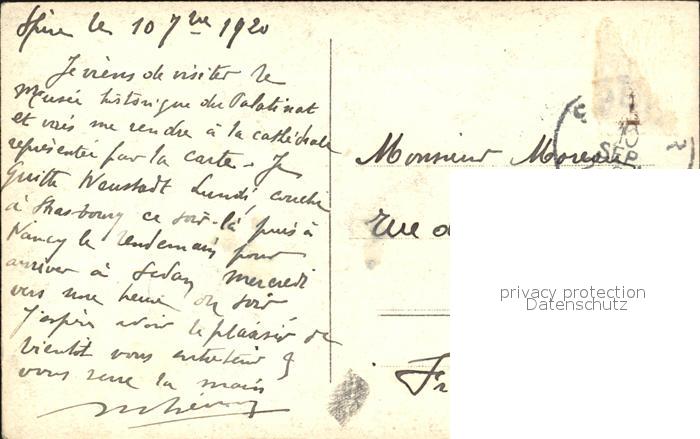 Spire le 10 7bre 1920
Je viens de visiter le
Musée historique du Palatinat
et vais me rendre à la cathédrale
représentée par la carte. Je
quitte Neustadt Lundi, couche
à Strasbourg ce soir-là, puis à
Nancy le lendemain pour
arriver à Sedan mercredi
vers une heure du soir
J'espère avoir le plaisir de
bientôt vous entretenir &
vous serre la main
Monsieur Moreau
rue d
Fr
SEP
privacy protection
Datenschutz